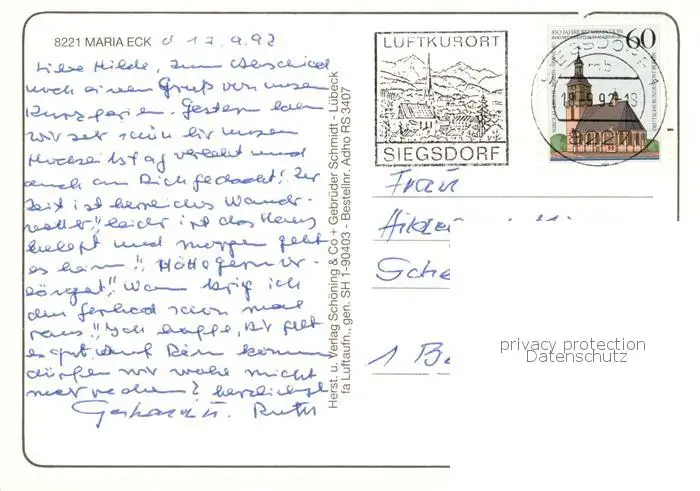 8221 MARIA ECK d 17.9.92
Liebe Hilde, zum Abschied
noch einen Gruß von unsen
Kurzferien. Gestern haben
wir sehr schön hir unsen
Hochzeitstag verlebt und
auch an Dich gedacht! Zur
Zeit ist herrliches Wander-
wetter!! leider ist das Haus
belegt und morgen geht
es heim!!
Wann krig ich
den schon mal
raus!! Ich hoffe, Dir geht
es gut. Auf Dein kommen
dürfen wir wohl nicht
mer rechnen? herzlichst
Gerhard u. Ruth
Herst. u. Verlag Schöning & Co + Gebrüder Schmidt - Lübeck
fa Luftaufn., gen. SH 1-90403 - Bestellnr. Adho RS 3407
LUFTKURORT
SIEGSDORF
450 JAHRE REFORMATION
60
DEUTSCHE BUNDESPOST BERLIN
SIEGSDORF
18.-9.92-18
Frau
Sche
1 Be
privacy protection
Datenschutz